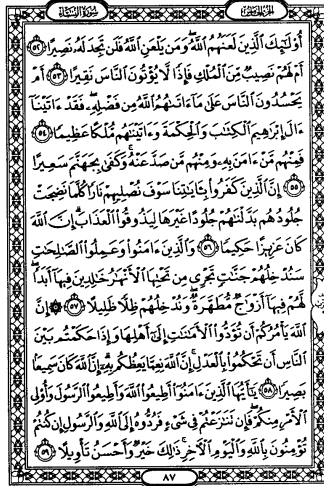 الجزء الخامس
سورة النساء
أُو۟لَٰٓئِكَ ٱلَّذِينَ لَعَنَهُمُ ٱللَّهُ وَمَن يَلْعَنِ ٱللَّهُ فَلَن تَجِدَ لَهُۥ نَصِيرًا ٥٢
أَمْ لَهُمْ نَصِيبٌ مِّنَ ٱلْمُلْكِ فَإِذًا لَّا يُؤْتُونَ ٱلنَّاسَ نَقِيرًا ٥٣ أَمْ
يَحْسُدُونَ ٱلنَّاسَ عَلَىٰ مَآ ءَاتَىٰهُمُ ٱللَّهُ مِن فَضْلِهِۦ فَقَدْ ءَاتَيْنَآ
ءَالَ إِبْرَٰهِيمَ ٱلْكِتَٰبَ وَٱلْحِكْمَةَ وَءَاتَيْنَٰهُم مُّلْكًا عَظِيمًا ٥٤
فَمِنْهُم مَّنْ ءَامَنَ بِهِۦ وَمِنْهُم مَّن صَدَّ عَنْهُ وَكَفَىٰ بِجَهَنَّمَ سَعِيرًا
٥٥ إِنَّ ٱلَّذِينَ كَفَرُوا۟ بِـَٔايَٰتِنَا سَوْفَ نُصْلِيهِمْ نَارًا كُلَّمَا نَضِجَتْ
جُلُودُهُم بَدَّلْنَٰهُمْ جُلُودًا غَيْرَهَا لِيَذُوقُوا۟ ٱلْعَذَابَ إِنَّ ٱللَّهَ
كَانَ عَزِيزًا حَكِيمًا ٥٦ وَٱلَّذِينَ ءَامَنُوا۟ وَعَمِلُوا۟ ٱلصَّٰلِحَٰتِ
سَنُدْخِلُهُمْ جَنَّٰتٍ تَجْرِى مِن تَحْتِهَا ٱلْأَنْهَٰرُ خَٰلِدِينَ فِيهَآ أَبَدًا
لَّهُمْ فِيهَآ أَزْوَٰجٌ مُّطَهَّرَةٌ وَنُدْخِلُهُمْ ظِلًّا ظَلِيلًا ٥٧ ۞ إِنَّ
ٱللَّهَ يَأْمُرُكُمْ أَن تُؤَدُّوا۟ ٱلْأَمَٰنَٰتِ إِلَىٰٓ أَهْلِهَا وَإِذَا حَكَمْتُم بَيْنَ
ٱلنَّاسِ أَن تَحْكُمُوا۟ بِٱلْعَدْلِ إِنَّ ٱللَّهَ نِعِمَّا يَعِظُكُم بِهِۦٓ إِنَّ ٱللَّهَ كَانَ سَمِيعًۢا
بَصِيرًا ٥٨ يَٰٓأَيُّهَا ٱلَّذِينَ ءَامَنُوٓا۟ أَطِيعُوا۟ ٱللَّهَ وَأَطِيعُوا۟ ٱلرَّسُولَ وَأُو۟لِى
ٱلْأَمْرِ مِنكُمْ فَإِن تَنَٰزَعْتُمْ فِى شَىْءٍ فَرُدُّوهُ إِلَى ٱللَّهِ وَٱلرَّسُولِ إِن كُنتُمْ
تُؤْمِنُونَ بِٱللَّهِ وَٱلْيَوْمِ ٱلْءَاخِرِ ذَٰلِكَ خَيْرٌ وَأَحْسَنُ تَأْوِيلًا ٥٩
٨٧